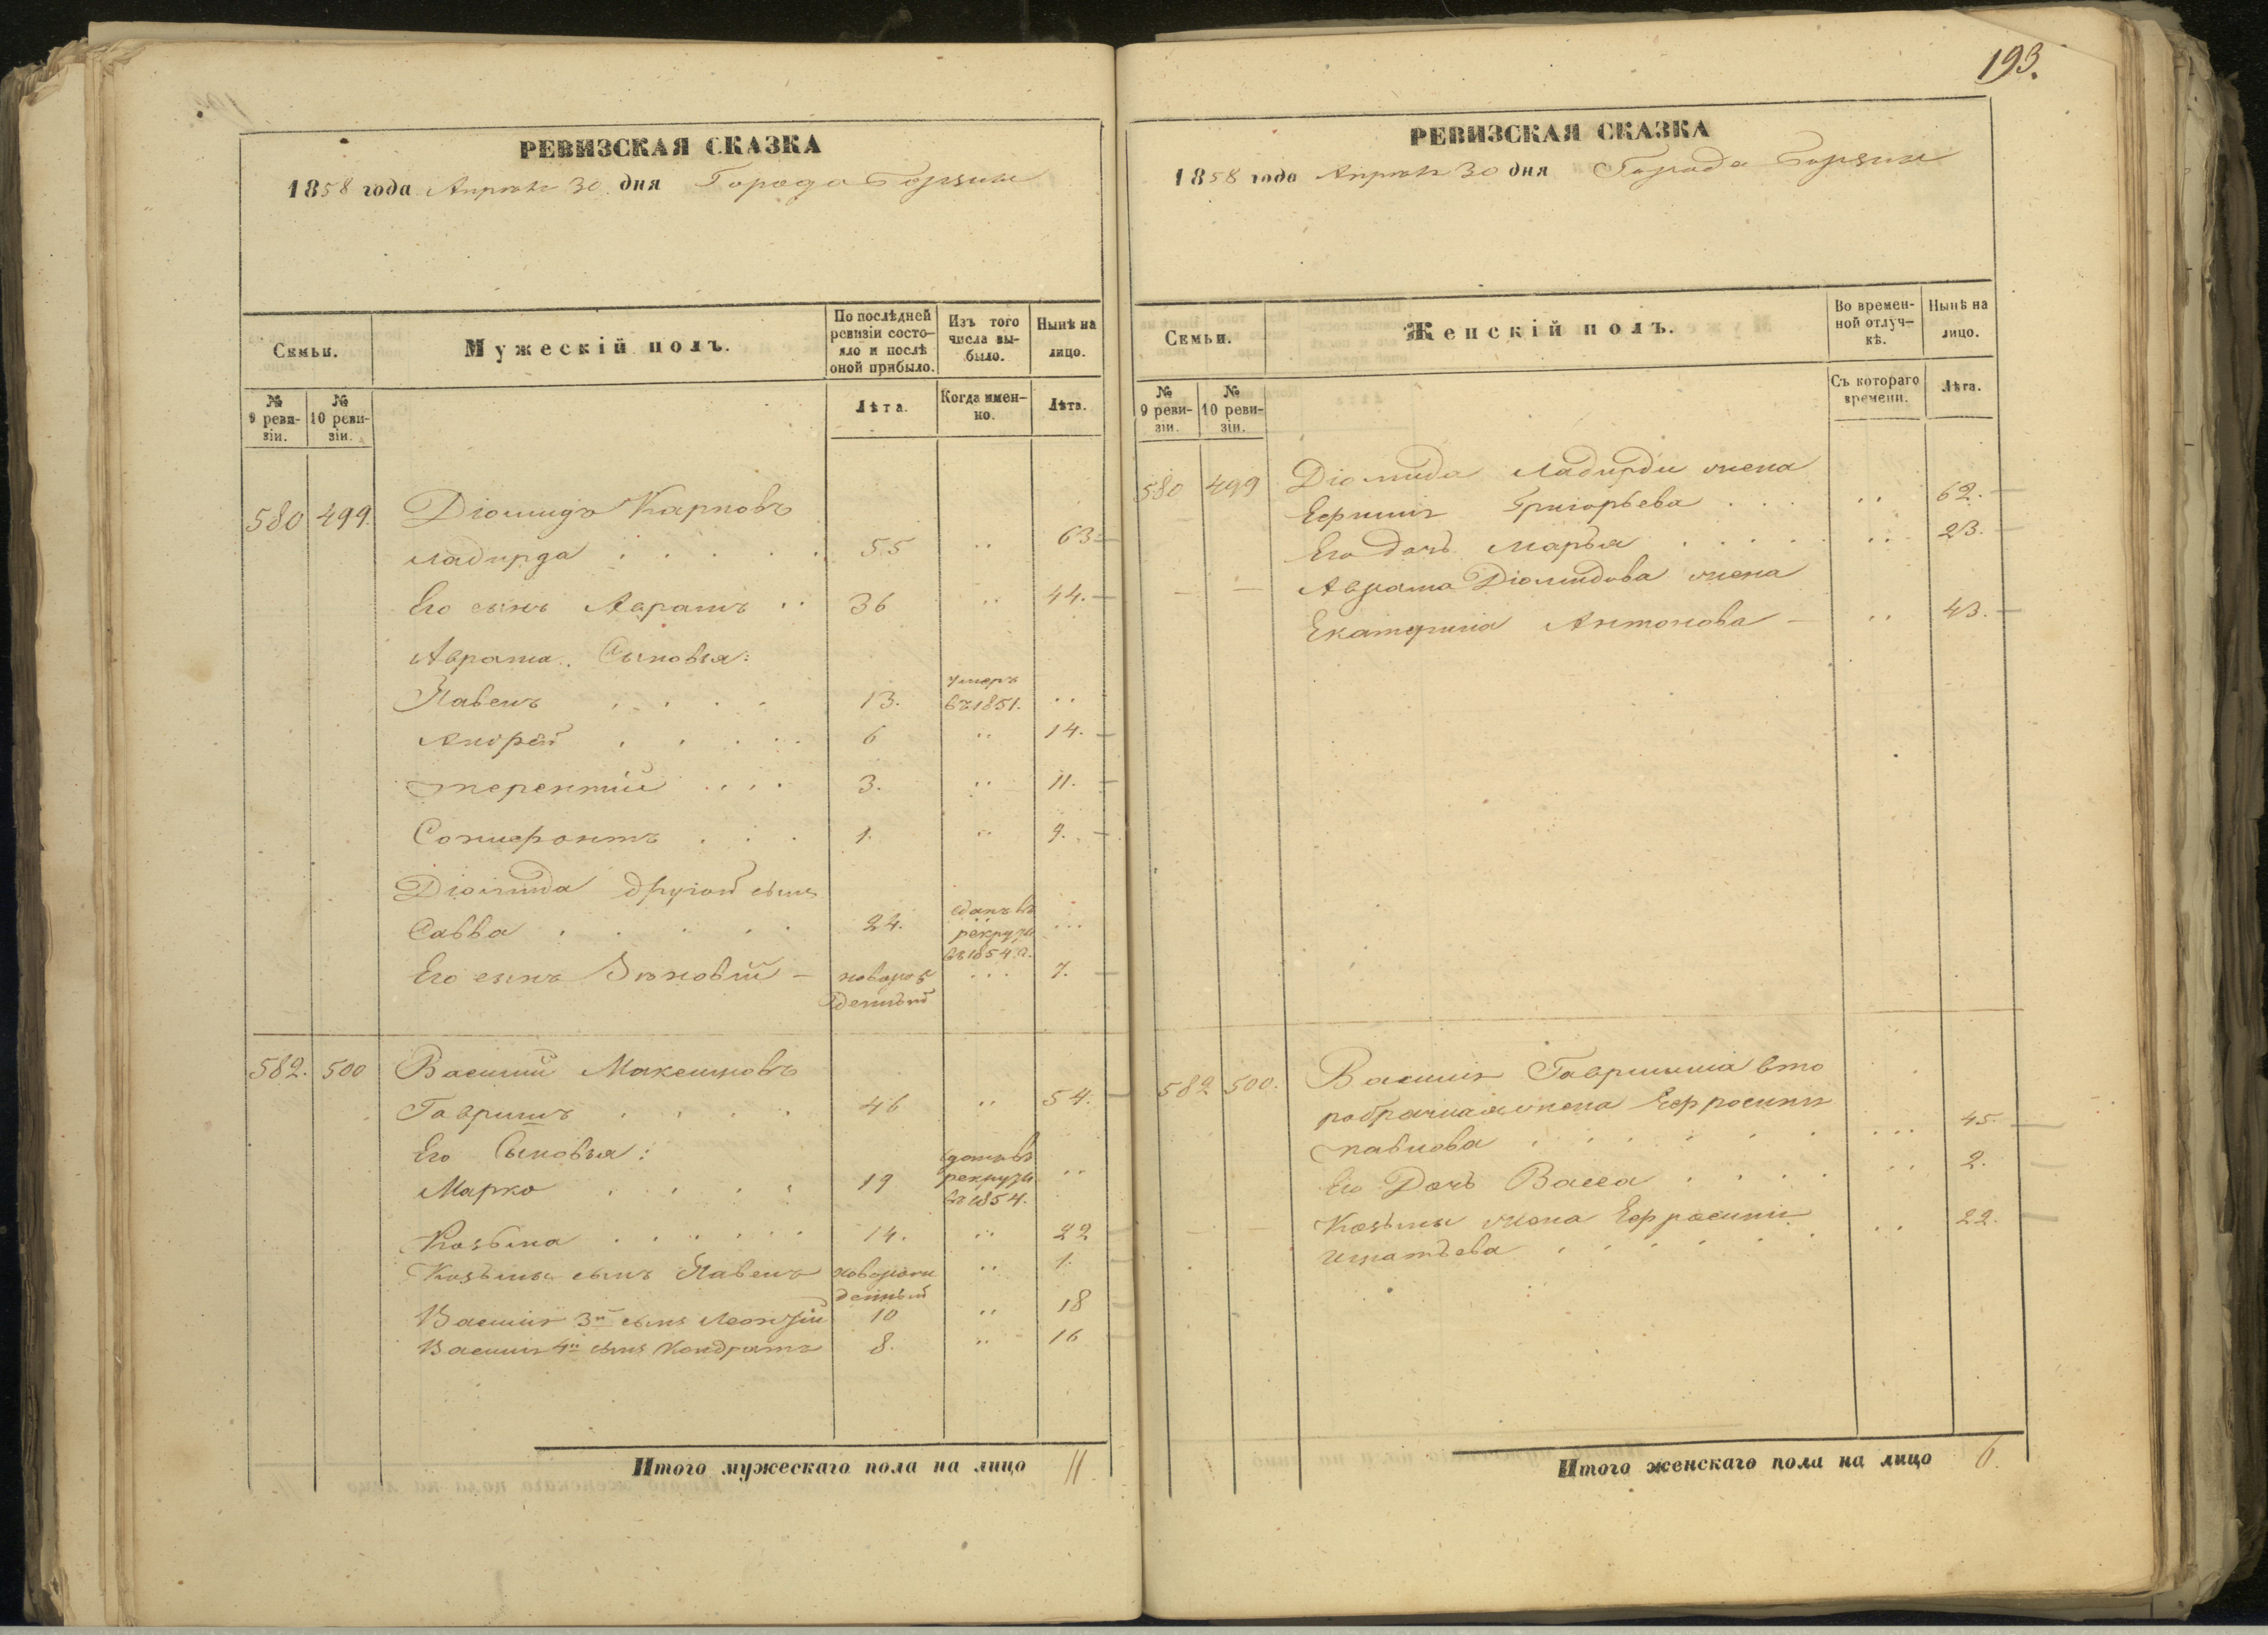 РЕВИЗСКАЯ СКАЗКА
1858 года Апреля 30 дня Города Борзны
Семьи.
Мужескій полъ.
По послѣдней ревизіи состояло и послѣ оной прибыло.
Изъ того числа выбыло.
Нынѣ на лицо.
№ 9 ревизіи.
№ 10 ревизіи.
Лѣта.
Когда именно.
Лѣта.
580 499. Діомидъ Карповъ
Ладирда . . . . . 55 .. 63
Его сынъ Аврамъ .. 36 .. 44.
Аврама Сыновья:
Павелъ . . . . 13. умеръ въ 1851. ..
Андрей . . . . . 6 .. 14.
Терентій . . . . 3. .. 11.
Созонтъ . . . 1. .. 9.
Діомида другой сынъ
Савва . . . . . 24. сданъ въ рекруты въ 1854 г. ...
Его сынъ Зѣновій — новорожденный ... 7.
582. 500 Василий Максимовъ
Гавришъ . . . . 46 .. 54.
Его Сыновья:
Марко . . . . 19 сданъ въ рекруты въ 1854. ..
Козьма . . . . . . 14. .. 22
Козьмы сынъ Павелъ новорожденный .. 1.
Василія 3й сынъ Леонтій 10 .. 18
Василія 4й сынъ Кондратъ 8. .. 16
Итого мужескаго пола на лицо 11.
193.
РЕВИЗСКАЯ СКАЗКА
1858 года Апреля 30 дня Города Борзны
Семьи.
Женскій полъ.
Во временной отлучкѣ.
Нынѣ на лицо.
№ 9 ревизіи.
№ 10 ревизіи.
Съ котораго времени.
Лѣта.
580 499 Діомида Ладирды жена
Ефимія Григорьева . . . .. 62.
Его дочь Марья . . . . .. 23.
— — Аврама Діомидова жена
Екатерина Антонова — .. 43.
582 500. Василія Гавриша вто
робрачная жена Ефросинія
Павлова . . . . . . ... 45.
Его Дочь Васса . . . . .. 2.
— — Козьмы жена Ефросинія
Игнатьева . . . . . . .. 22.
Итого женскаго пола на лицо 6.